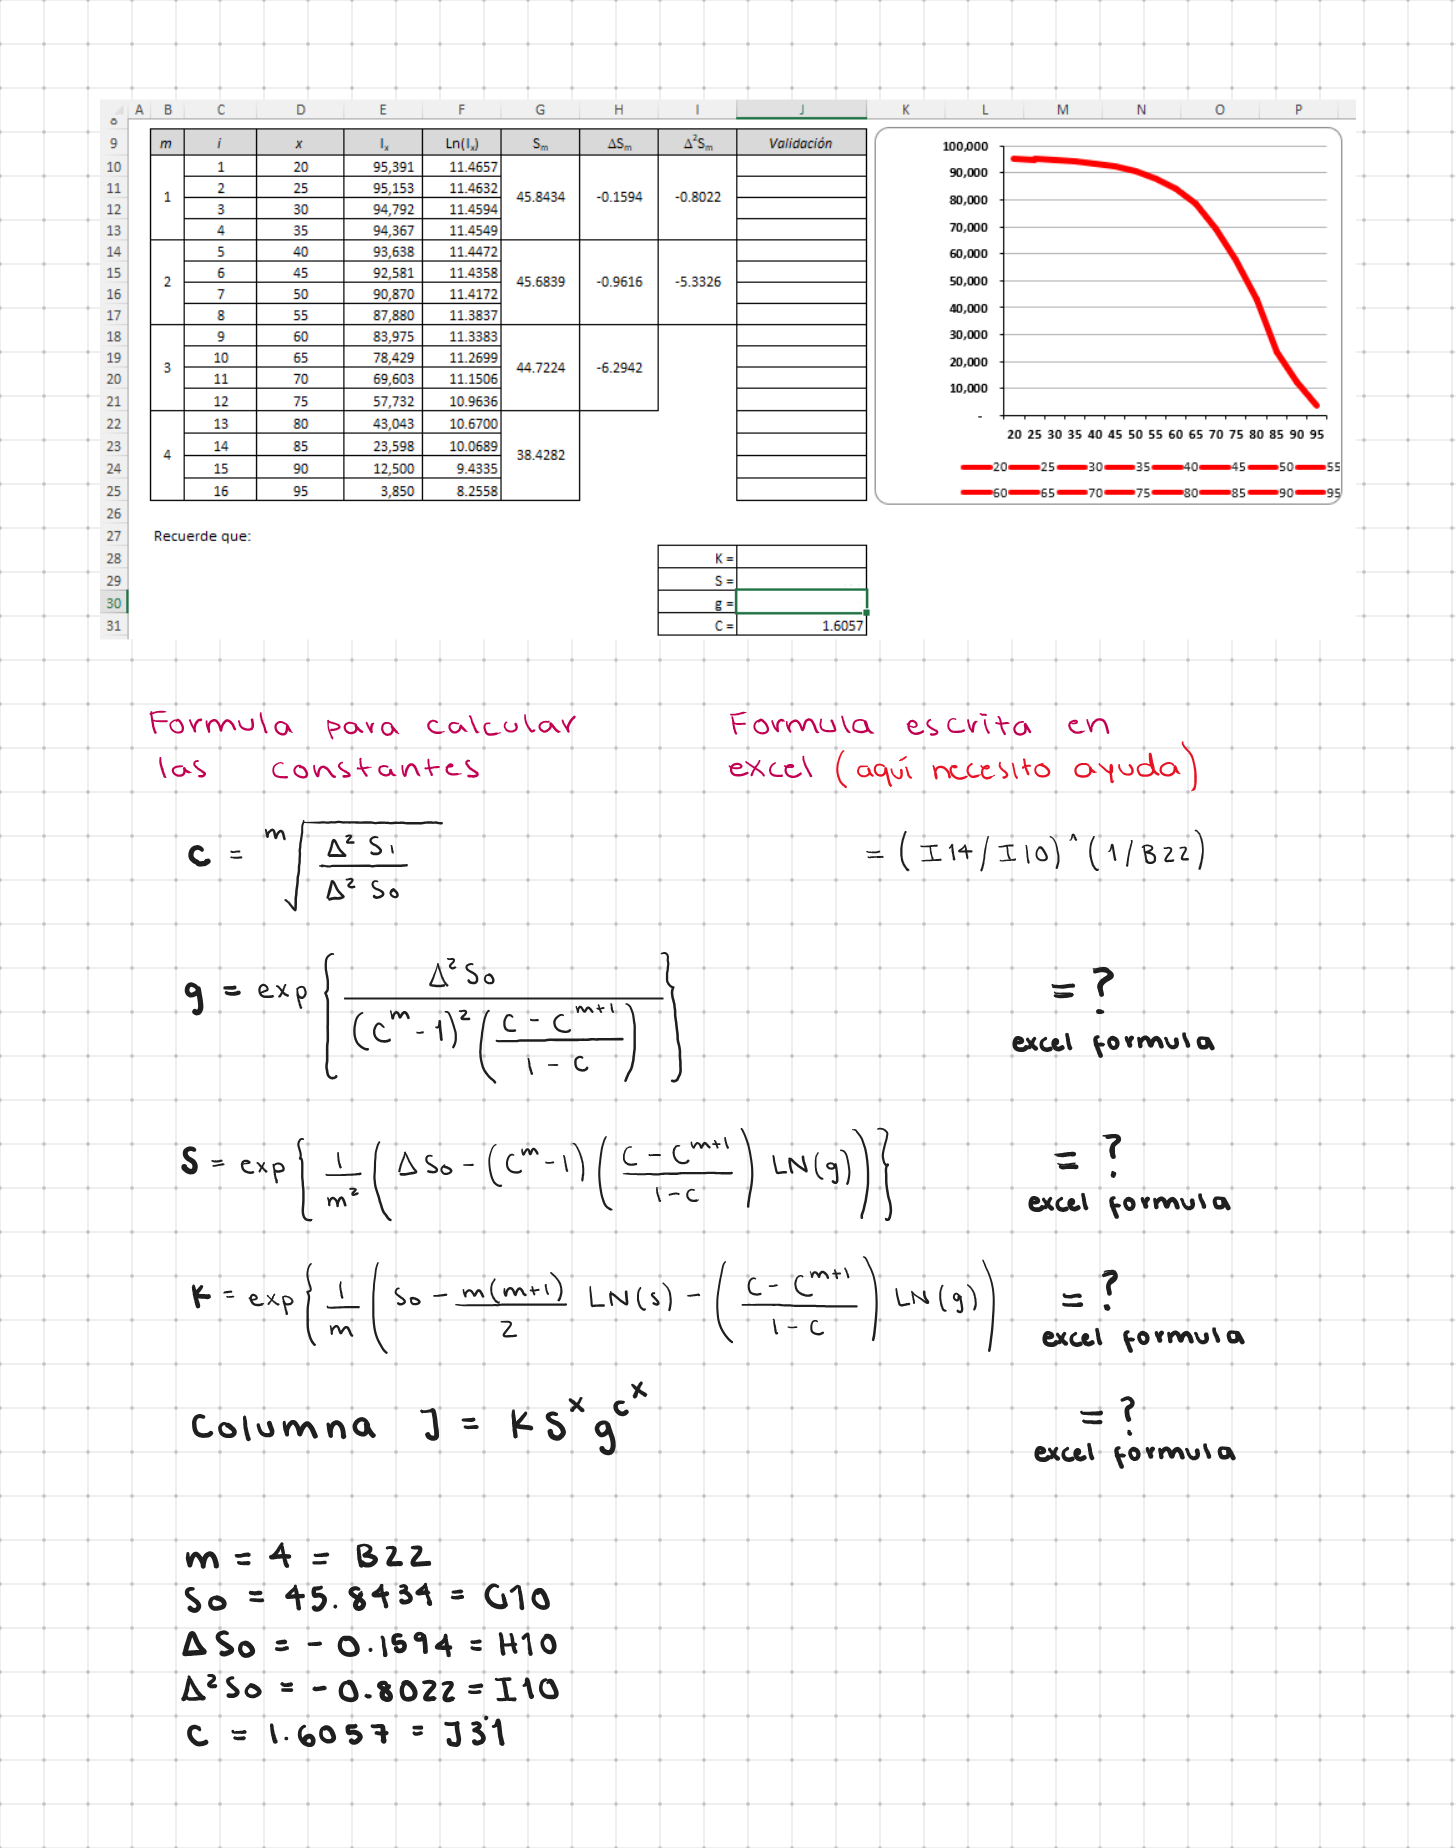 A B C D E F G H I J K L M N O P
8
9 m i x lₓ Ln(lₓ) Sₘ ΔSₘ Δ²Sₘ Validación
10 1 20 95,391 11.4657
11 2 25 95,153 11.4632
1 45.8434 -0.1594 -0.8022
12 3 30 94,792 11.4594
13 4 35 94,367 11.4549
14 5 40 93,638 11.4472
15 6 45 92,581 11.4358
2 45.6839 -0.9616 -5.3326
16 7 50 90,870 11.4172
17 8 55 87,880 11.3837
18 9 60 83,975 11.3383
19 10 65 78,429 11.2699
3 44.7224 -6.2942
20 11 70 69,603 11.1506
21 12 75 57,732 10.9636
22 13 80 43,043 10.6700
23 14 85 23,598 10.0689
4 38.4282
24 15 90 12,500 9.4335
25 16 95 3,850 8.2558
26
27 Recuerde que:
28 K =
29 S =
30 g =
31 C = 1.6057
100,000
90,000
80,000
70,000
60,000
50,000
40,000
30,000
20,000
10,000
-
20 25 30 35 40 45 50 55 60 65 70 75 80 85 90 95
20 25 30 35 40 45 50 55
60 65 70 75 80 85 90 95
Formula para calcular
las constantes
Formula escrita en
excel (aquí necesito ayuda)
C = ᵐ√(Δ² S₁ / Δ² S₀)
= (I14/I10)^(1/B22)
g = exp { Δ² S₀ / ((C^m - 1)² ((C - C^(m+1)) / (1 - C))) }
= ?
excel formula
S = exp { 1/m² ( ΔS₀ - (C^m - 1) ((C - C^(m+1)) / (1 - C)) LN(g) ) }
= ?
excel formula
K = exp { 1/m ( S₀ - m(m+1)/2 LN(s) - ((C - C^(m+1)) / (1 - C)) LN(g) )
= ?
excel formula
Columna J = K S^x g^c^x
= ?
excel formula
m = 4 = B22
S₀ = 45.8434 = G10
Δ S₀ = - 0.1594 = H10
Δ² S₀ = - 0.8022 = I10
C = 1.6057 = J31